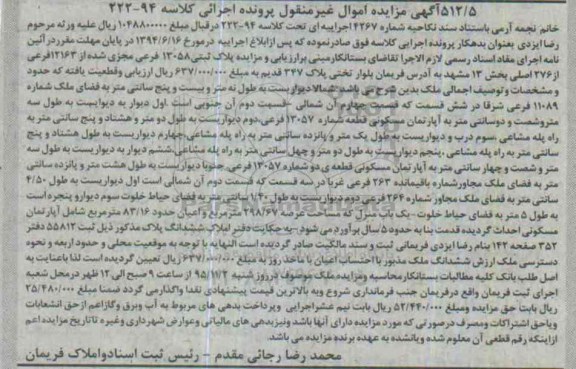 ۵۱۲/۵آگهی مزایده اموال غیرمنقول پرونده اجرائی کلاسه ۹۴-۲۲۲
خانم نجمه آرمی باستناد سند نکاحیه شماره ۴۲۶۷ اجراییه ای تحت کلاسه ۹۴-۲۲۲ درقبال مبلغ ۱۰۴۸۸۰۰۰۰۰ ریال علیه ورثه مرحوم
رضا ایزدی بعنوان بدهکار پرونده اجرایی کلاسه فوق صادرنموده که پس ازابلاغ اجراییه درمورخ ۱۳۹۴/۶/۱۶ در پایان مهلت مقرر در آئین
نامه اجرای مفاد اسناد رسمی لازم الاجرا تقاضای بستانکارمبنی برارزیابی و مزایده پلاک ثبتی ۱۳۰۵۸ فرعی مجزی شده از ۱۲۱۶۳فرعی
از ۲۷۶ اصلی بخش ۱۳ مشهد به آدرس فریمان بلوار تختی پلاک ۳۴۷ قدیم به مبلغ ۶۳۷/۰۰۰/۰۰۰ ریال ارزیابی وقطعیت یافته که حدود
و مشخصات و توصیف اجمالی ملک بدین شرح می باشد. شمالا دیواریست به طول نه متر و بیست و پنج سانتی متر به فضای ملک شماره
۱۱۰۸۹ فرعی شرقا در شش قسمت که قسمت چهارم آن شمالی -قسمت دوم آن جنوبی است .اول دیوار به دیواریست به طول سه
متروشصت و دوسانتی متر به آپارتمان مسکونی قطعه شماره ۱۳۰۵۷ فرعی،دوم دیواریست به طول دو متر و هشتاد و پنج سانتی متر به
راه پله مشاعی .سوم درب و دیواریست به طول یک متر و پانزده سانتی متر به راه پله مشاعی،چهارم دیواریست به طول هشتاد و پنج
سانتی متر به راه پله مشاعی ،پنجم دیواریست به طول دو متر و چهل سانتی متر به راه پله مشاعی،ششم دیوار به دیواریست به طول سه
متر و شصت و چهار سانتی متر به آپارتمان مسکونی قطعه ی دو شماره ۱۳۰۵۷ فرعی. جنوبا دیواریست به طول هشت متر و پانزده سانتی
متر به فضای ملک مجاورشماره باقیمانده ۲۶۳ فرعی غربا در سه قسمت که قسمت دوم آن شمالی است اول دیواریست به طول ۴/۵۰
سانتی متر به فضای ملک مجاور شماره ۲۶۴ فرعی دوم دیواریست به طول ۱/۴۰ سانتی متر به فضای حیاط خلوت سوم دیوارو پنجره است
به طول ۵ متر به فضای حیاط خلوت -یک باب منزل که مساحت عرصه ۲۹۸/۶۷ متر مربع و اعیان حدود ۸۳/۱۶ مترمربع شامل آپارتمان
مسکونی احداث گردیده قدمت بنا به حدود ۵ سال برآورد می شود -به حکایت دفتر املاک ششدانگ پلاک مذکور ذیل ثبت ۵۵۸۱۲ دفتر
۳۵۲ صفحه ۱۴۲ بنام رضا ایزدی فریمانی ثبت و سند مالکیت صادر گردیده است النهایه با توجه به موقعیت محلی و حدود اربعه و نحوه
دسترسی ملک ارزش ششدانگ ملک مذبور با احتساب اعیان با ماخذ روز به مبلغ ۶۳۷/۰۰۰/۰۰۰ ریال تعیین گردیده است لذا باعنایت به
اصل طلب بانک کلیه مطالبات بستانکارمحاسبه ومزایده ملک موصوف درروز شنبه ۹۵/۱۱/۲ از ساعت ۹ صبح الی ۱۲ ظهر درمحل شعبه
اجرای ثبت فریمان واقع درفریمان جنب فرمانداری شروع وبه بالاترین قیمت پیشنهادی نقدا واگذارمی گردد ضمنا مبلغ ۲۵/۴۸۰/۰۰۰
ریال بابت حق مزایده ومبلغ ۵۲/۴۴۰/۰۰۰ ریال بابت نیم عشراجرایی وپرداخت بدهی های مربوط به آب وبرق وگازاعم ازحق انشعابات
ویاحق اشتراکات ومصرف درصورتی که مورد مزایده دارای آنها باشد ونیزبدهی های مالیاتی وعوارض شهرداری وغیره تاتاریخ مزایده اعم
ازاینکه رقم قطعی آن معلوم شده ویانشده به عهده برنده مزایده می باشد.
محمد رضا رجائی مقدم - رئیس ثبت اسنادواملاک فریمان